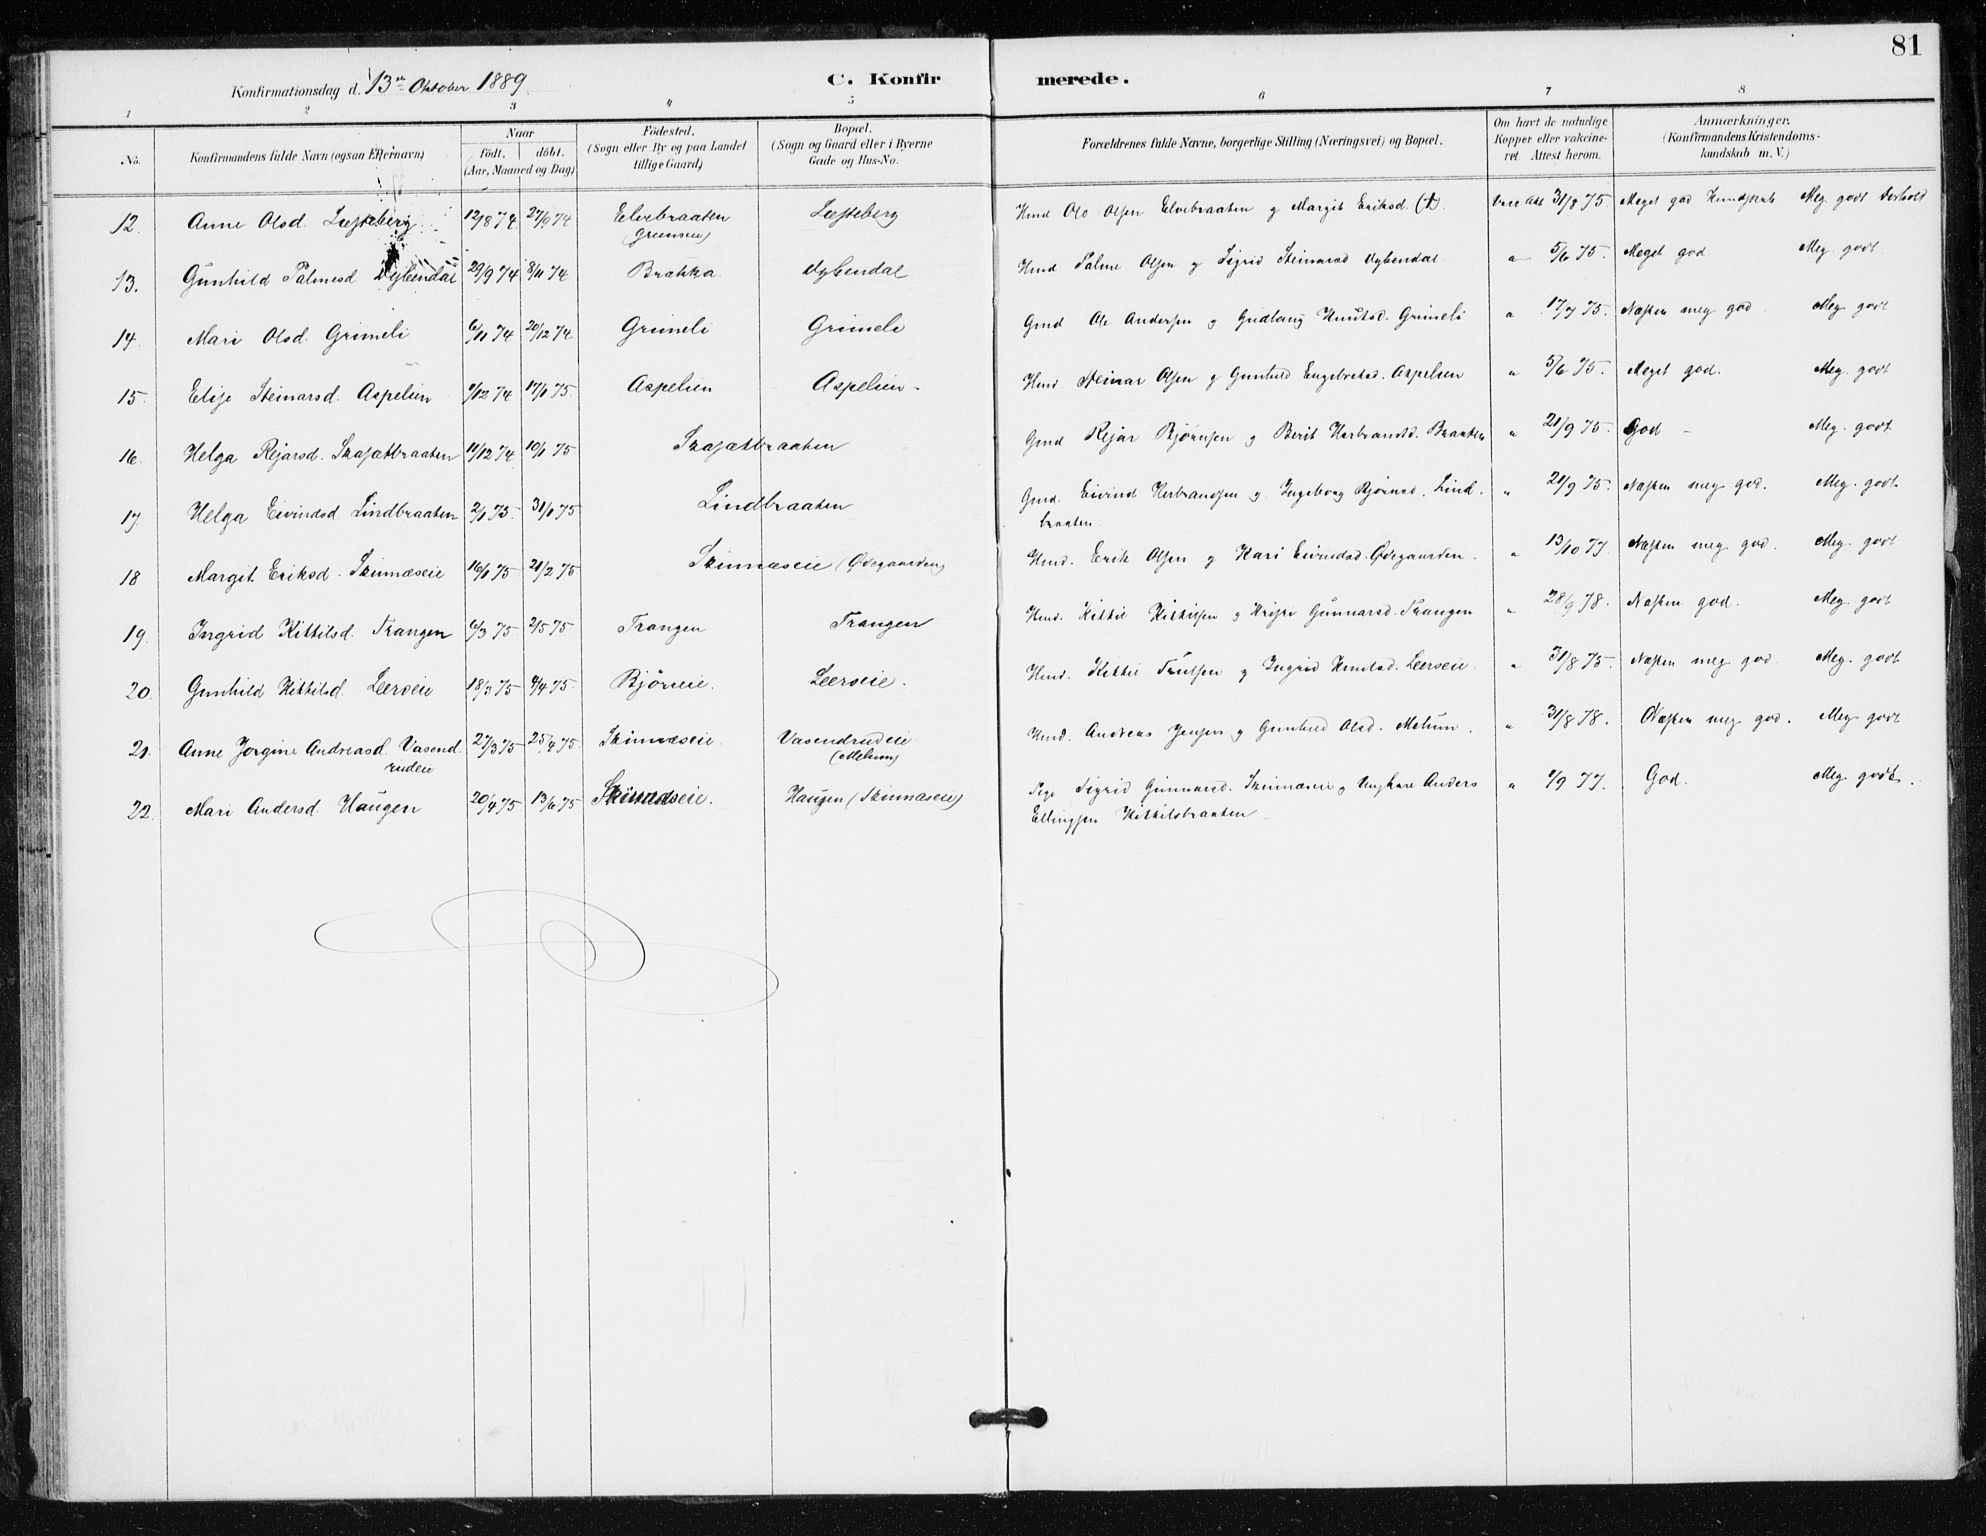 81
Konfirmationsdag d. 13de Oktober 1889
C. Konfirmerede.
1 2 3 4 5 6 7 8
No. Konfirmandens fulde Navn (ogsaa Efternavn) Naar født. døbt. (Aar, Maaned og Dag) Fødested. (Sogn eller By og paa Landet tillige Gaard) Bopæl. (Sogn og Gaard eller i Byerne Gade og Hus-No. Forældrenes fulde Navne, borgerlige Stilling (Næringsvei) og Bopæl. Om havt de naturlige Kopper eller vakcineret. Attest herom. Anmærkninger. (Konfirmandens Kristendomskundskab m. V.)
12. Anne Olsd. Lesteberg 12/8 74 27/9 74 Elvebraaten (Grimseie) Lesteberg Hmd Ole Olsen Elvebraaten g Margit Eriksd. (†). 31/8 75. Meget god Kundskab Meg. godt Forhold
13. Gunhild Palmesd Dybendal 29/9 74 8/11 74 Brakka Dybendal Hmd Palme Olsen g Sigrid Steinarsd Dybendal " 5/6 75. Meget god Meg. godt
14. Mari Olsd. Grimeli 6/11 74 20/12 74 Grimeli Grimeli Gmd Ole Andersen g Gudlaug Knutsd. Grimeli " 17/7 75. Næsten meg god. Meg. godt
15. Elise Steinarsd. Aspelien 1/12 74 17/1 75. Aspelien Aspelien. Hmd Steinar Olsen g Gunhild Engebretsd. Aspelien " 5/6 75. Meget god. Meg. godt
16. Helga Rejarsd. Skasætbraaten 11/12 74 10/1 75 Skasætbraaten Gmd Rejar Bjørnsen g Berit Herbrandsd. Braaten " 21/9 75. God - Meg. godt
17 Helga Eivindsd Lindbraaten 2/1 75. 31/1 75 Lindbraaten Gmd. Eivind Herbrandsen g. Ingeborg Bjørnsd. Lind-
braaten. " 21/9 75. Næsten meg god. Meg. godt
18 Margit Eriksd. Skinnæseie 16/1 75 21/2 75 Skinnæseie (Ødegaarden) Hmd. Erik Olsen g Kari Eivindsd. Ødegaarden. " 13/10 77. Næsten meg god. Meg. godt
19. Ingrid Kittilsd. Trangen 6/3 75 2/5 75 Trangen Trangen Hmd. Kittil Kittilsen g Kristi Gunnarsd. Trangen " 28/9 78. Næsten god. Meg. godt
20. Gunhild Kittilsd. Leerseie 18/3 75 4/4 75. Bjørneie. Leerseie. Hmd. Kittil Trulsen g Ingrid Knutsd. Leerseie. " 31/8 75. Næsten meg god. Meg. godt
21. Anne Jorgine Andreasd. Vasend-
rudeie 27/3 75 25/4 75. Skinnæseie. Vasendrudeie (Melum) Hmd. Andreas Jensen g Gunhild Olsd. Melum. " 31/8 78. Næsten meg god. Meg godt
22. Mari Andersd. Haugen 20/4 75 13/6 75 Skinnæseie. Haugen (Skinnæseie) Pige Sigrid Gunnarsd. Skinnæseie g Ungkarl Anders
Ellingsen Kittilsbraaten. " 1/9 77. God. Meg godt.